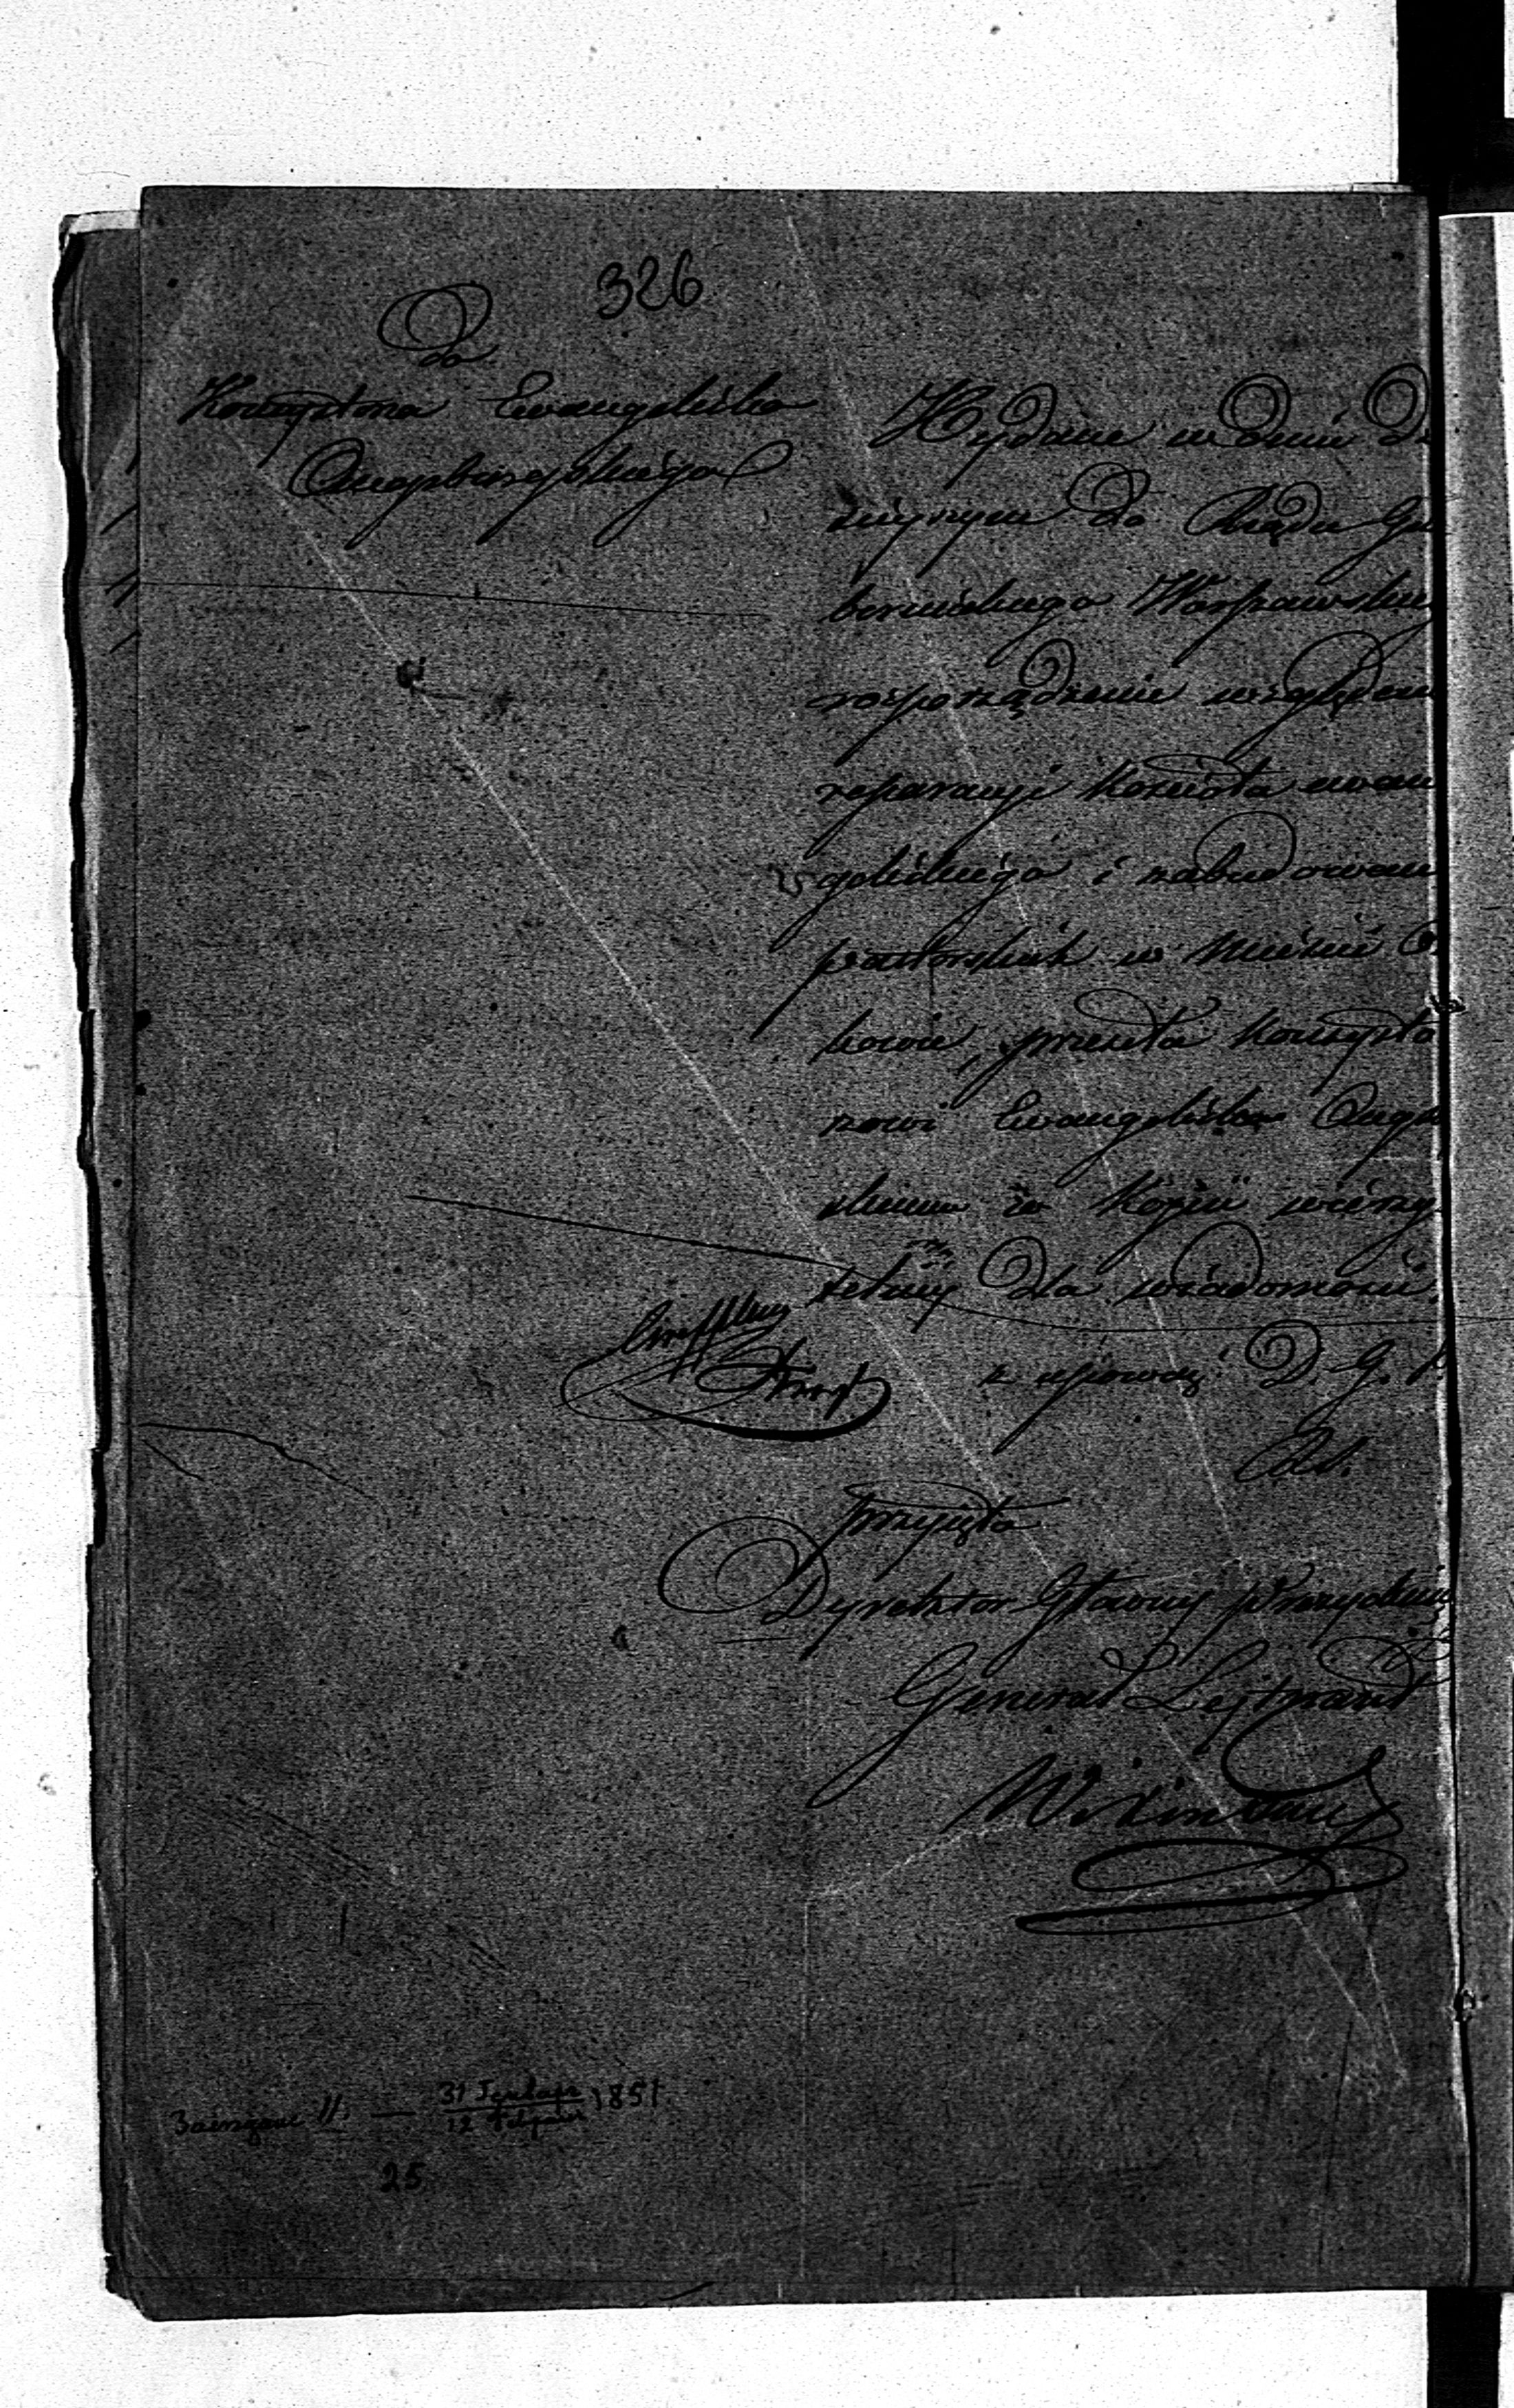 326
Do
Konsystorza Ewangelicko
Augsburgskiego
Wydane w dniu D
siejszym do Rządu Gu
bernialnego Warszawskie
rosporządzenie względem
reparacyi kościoła ewan
gelickiego i zabudowań
pastorskich w mieście
kowie, przesyła Konsysto
rzowi Ewangelicko Augs
skiemu w kopii wierzy
telnéj dla wiadomości.
z upoważ: D. G. P.
przyjęta
Dyrektor Główny Prezydują
Generał Lejtnant
Wikinskij
31 Генваря
12 Февраля 1851
25